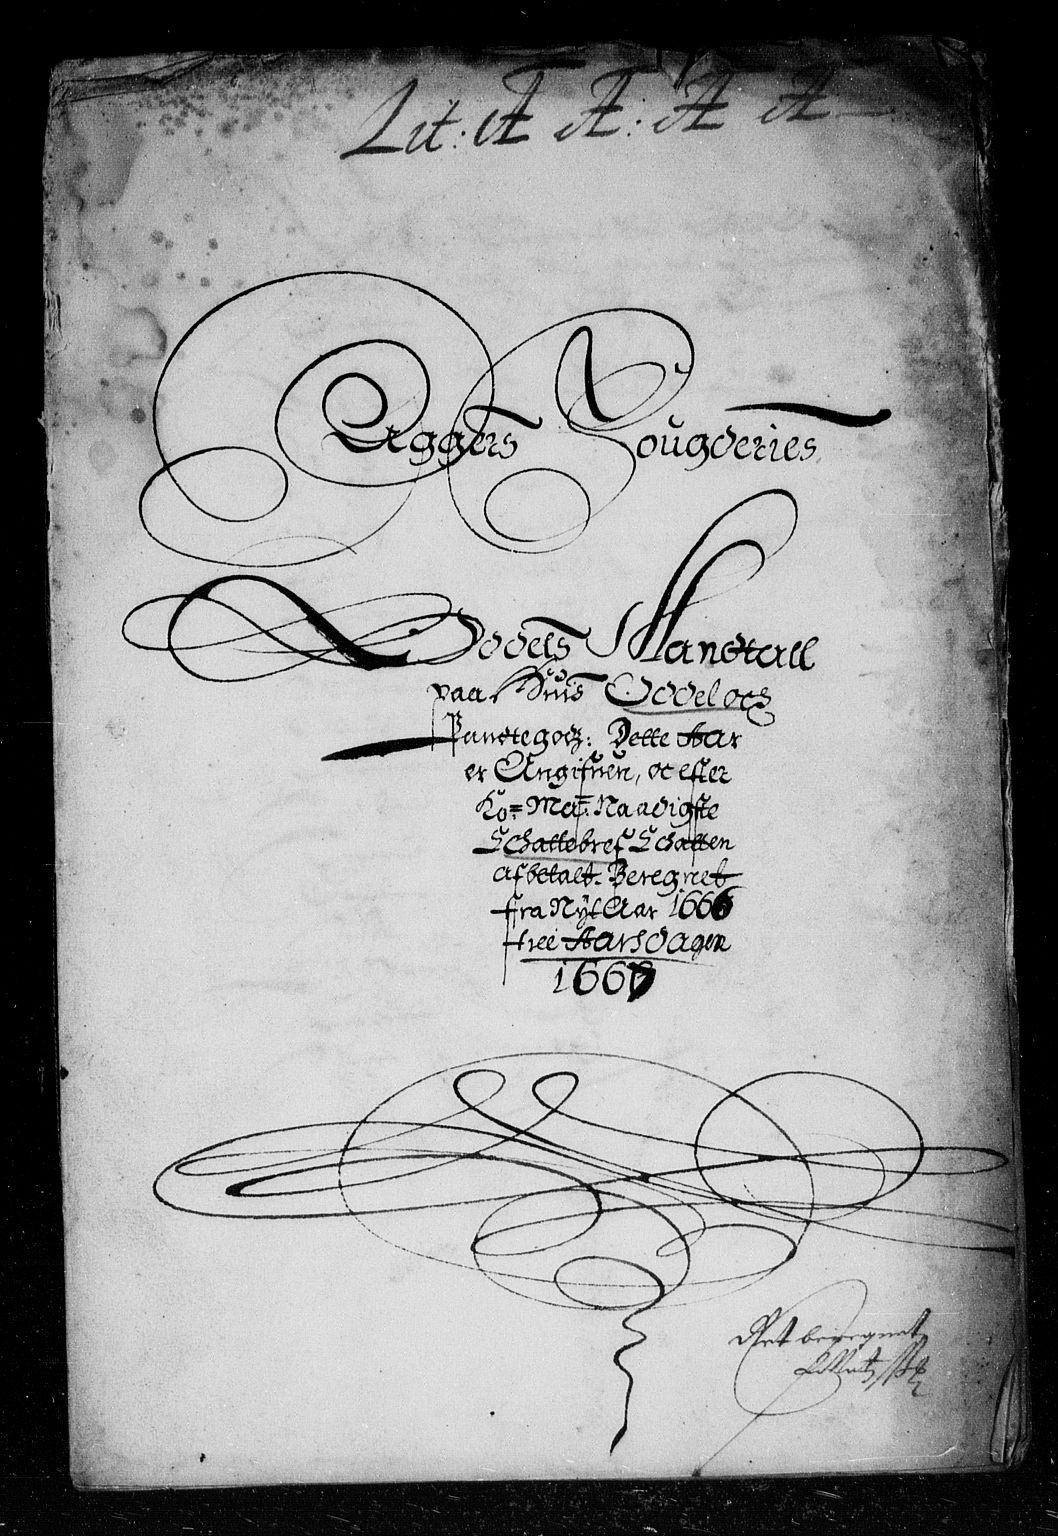 Lit: A A: A A
Aggers Fougderies
Oddels Mandtall
paa huis Oddel och
Pandtegodz: Dette Aar
er Angifuen, oc efter
Ko: Ma: Naadigste
Schattebref Schatten
afbetalt. Beregnet
fra Nyt Aar 1666
til Aarsdagen
1667
Ret beregnet